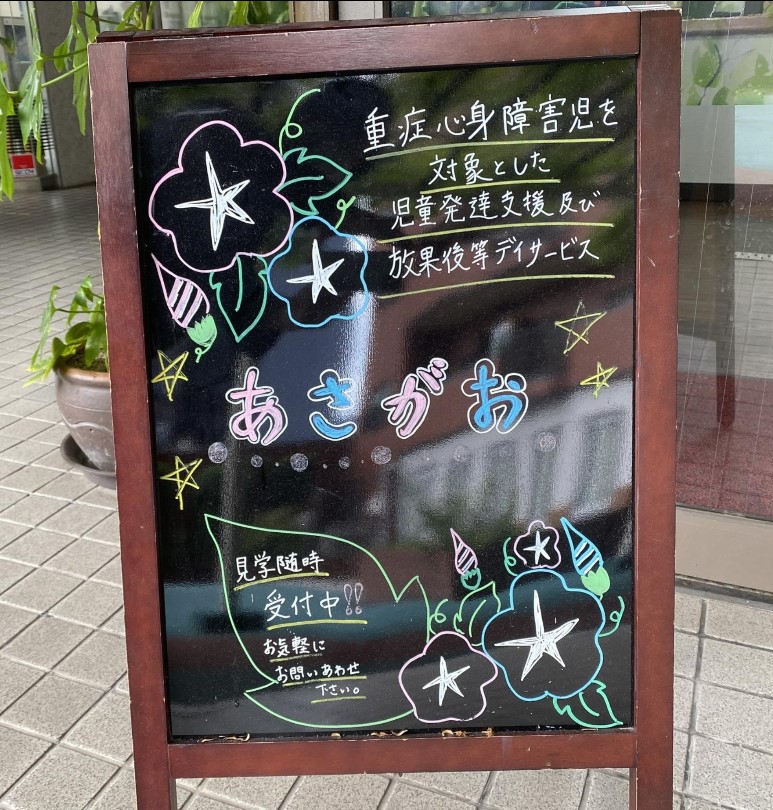 重症心身障害児を
対象とした
児童発達支援及び
放課後等デイサービス
あさがお
見学随時
受付中!!
お気軽に
お問いあわせ
下さい。